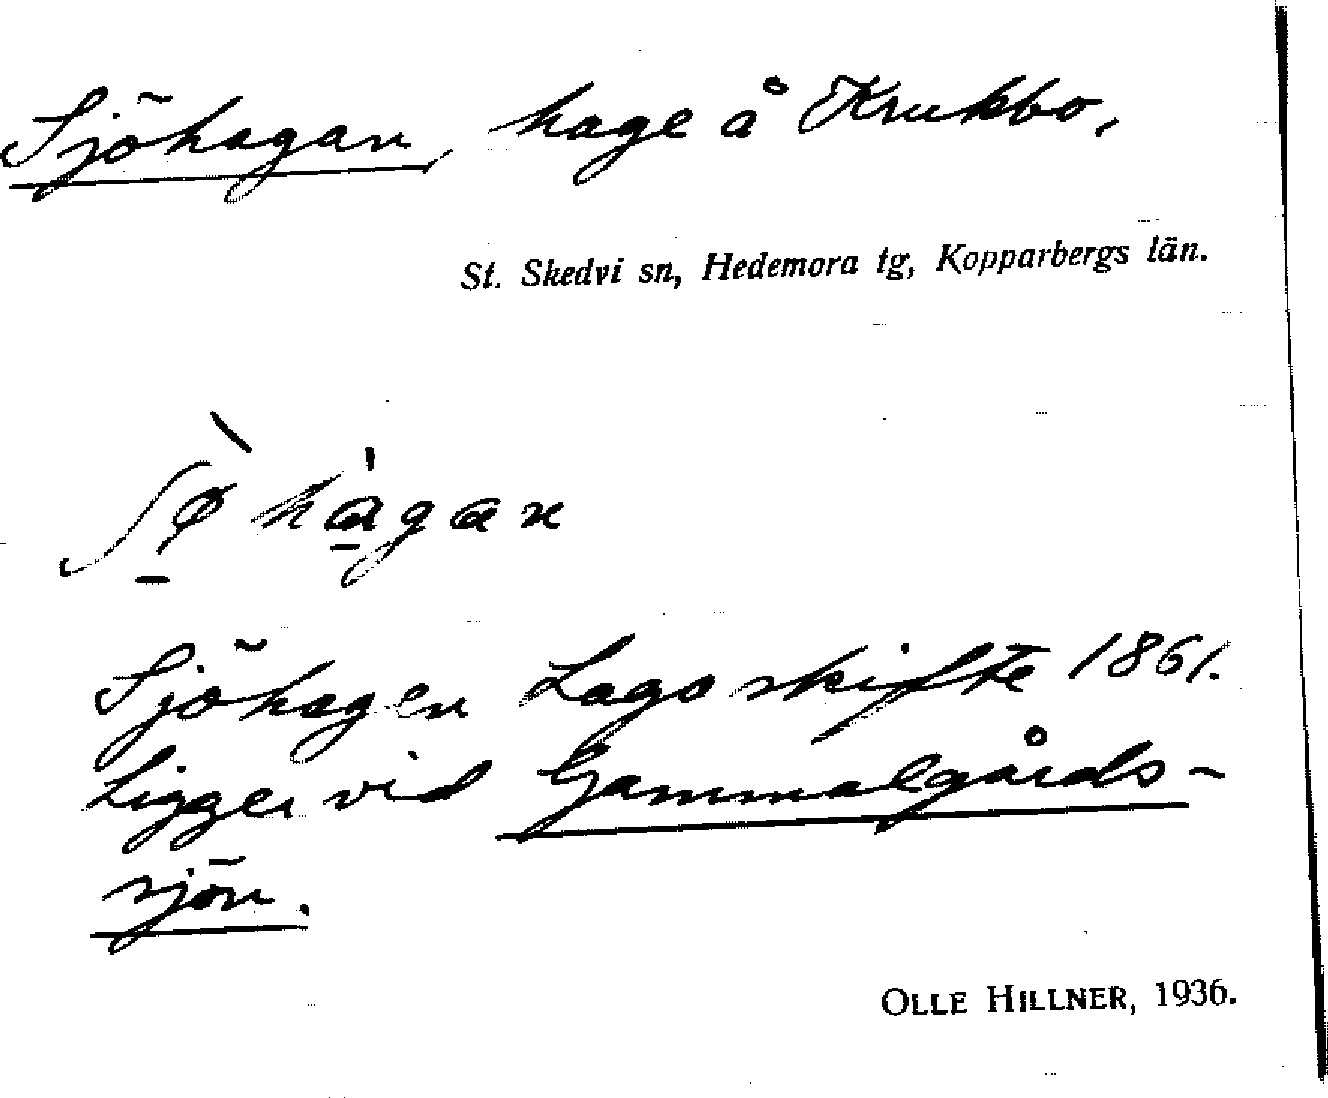 Sjöhagan, hage å Krukbo,
St. Skedvi sn, Hedemora tg, Kopparbergs län.
ʃø̠̀ hạ̀gan
Sjöhagen Laga skifte 1861.
Ligger vid Gammalgårds-
sjön.
OLLE HILLNER, 1936.